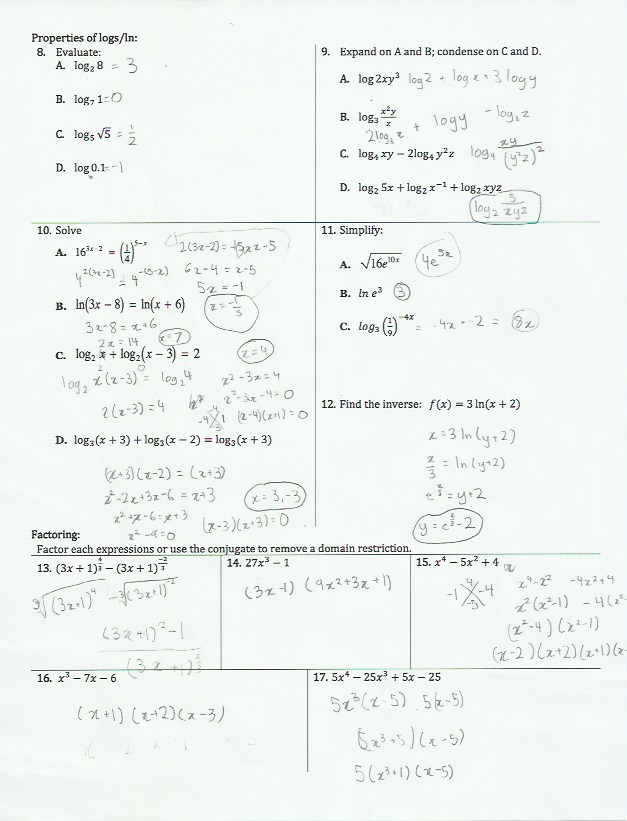 Properties of logs/ln:
8. Evaluate:
A. log₂ 8 = 3
B. log₇ 1 = 0
C. log₅ √5 = 1/2
D. log 0.1 = -1
9. Expand on A and B; condense on C and D.
A. log 2xy³ log 2 + log x + 3 log y
B. log₃ x²y/z
2log₃ x + log y - log₃ z
C. log₄ xy − 2log₄ y²z log₄ xy/(y²z)²
D. log₂ 5x + log₂ x⁻¹ + log₂ xyz
log₂ 5/xyz
10. Solve
A. 16^(3x−2) = (1/4)^(5−x) 2(3x-2) = x-5
4^(2(3x-2)) = 4^(-(5-x)) 6x-4 = x-5
5x = -1
x = -1/5
B. ln(3x − 8) = ln(x + 6)
3x-8 = x+6
2x = 14 x=7
C. log₂ x + log₂(x − 3) = 2 x=4
log₂ x(x-3) = log₂ 4 x²-3x=4
2(x-3)=4 x²-3x-4=0
(x-4)(x+1)=0
D. log₃(x + 3) + log₃(x − 2) = log₃(x + 3)
(x+3)(x-2) = (x+3)
x²-2x+3x-6 = x+3 x = 3,-3
x²+x-6 = x+3
x²-9=0 (x-3)(x+3)=0
11. Simplify:
A. √16e^(10x) 4e^(5x)
B. ln e³ 3
C. log₃ (1/9)^(−4x) = -4x · -2 = 8x
12. Find the inverse: f(x) = 3 ln(x + 2)
x = 3 ln(y+2)
x/3 = ln(y+2)
e^(x/3) = y+2
y = e^(x/3) - 2
Factoring:
Factor each expressions or use the conjugate to remove a domain restriction.
13. (3x + 1)^(4/3) − (3x + 1)^(−2/3)
³√(3x+1)⁴ - ³√(3x+1)⁻²
(3x+1)²-1
(3x+1)^(2/3)
14. 27x³ − 1
(3x-1) (9x²+3x+1)
15. x⁴ − 5x² + 4
-1 4 -4
-5
x⁴-x² -4x²+4
x²(x²-1) -4(x²-
(x²-4)(x²-1)
(x-2)(x+2)(x+1)(x-
16. x³ − 7x − 6
(x+1)(x+2)(x-3)
17. 5x⁴ − 25x³ + 5x − 25
5x³(x-5) 5(x-5)
(5x³+5)(x-5)
5(x³+1)(x-5)